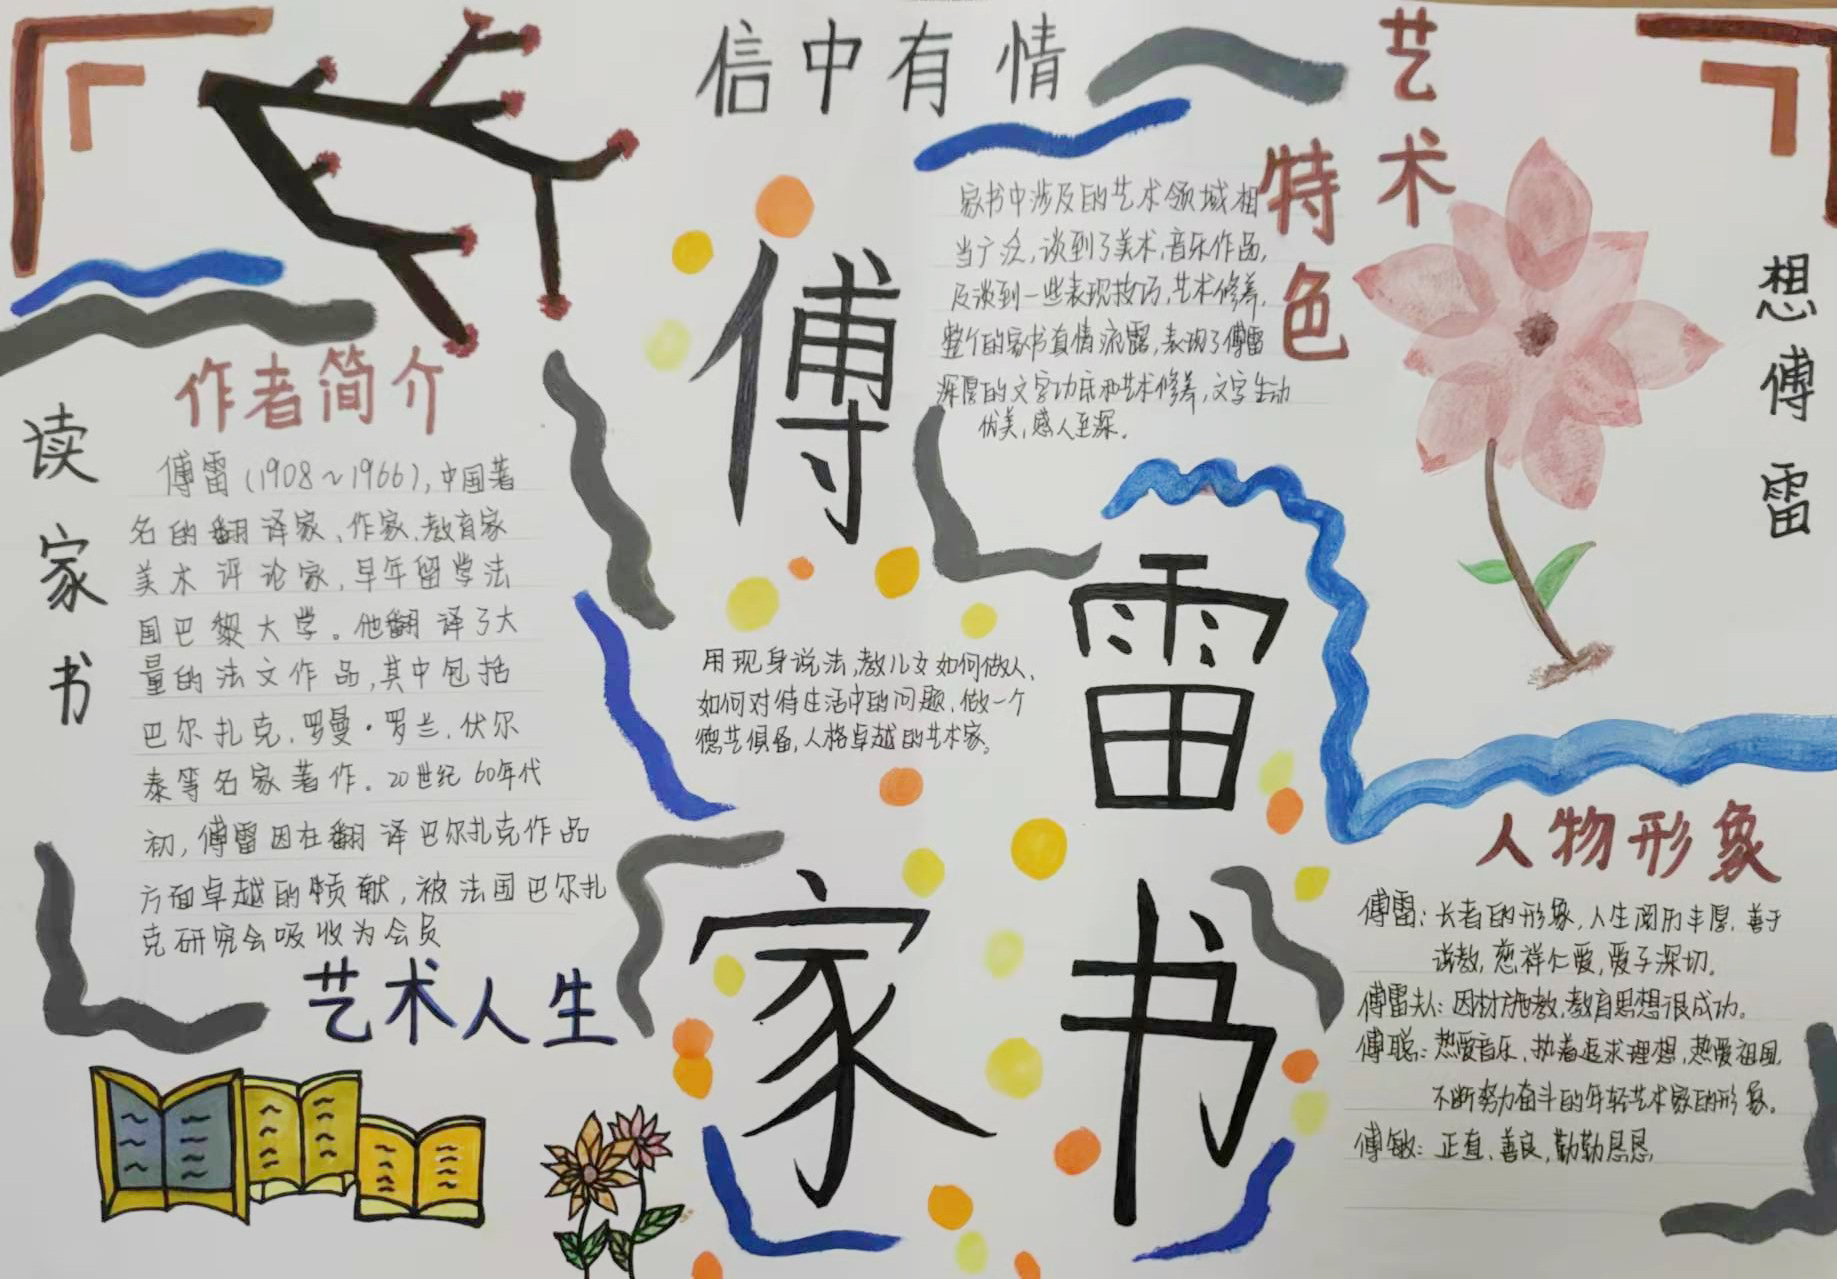 信中有情
读家书
想傅雷
傅雷家书
作者简介
傅雷(1908～1966),中国著
名的翻译家、作家、教育家
美术评论家,早年留学法
国巴黎大学。他翻译了大
量的法文作品,其中包括
巴尔扎克、罗曼·罗兰、伏尔
泰等名家著作。20世纪60年代
初,傅雷因在翻译巴尔扎克作品
方面卓越的贡献,被法国巴尔扎
克研究会吸收为会员
艺术人生
艺术
特色
家书中涉及的艺术领域相
当广泛,谈到了美术、音乐作品,
及谈到一些表现技巧,艺术修养,
整个的家书真情流露,表现了傅雷
深厚的文字功底和艺术修养,文字生动
优美,感人至深。
用现身说法,教儿女如何做人,
如何对待生活中的问题,做一个
德艺俱备,人格卓越的艺术家。
人物形象
傅雷:长者的形象,人生阅历丰厚、善于
说教,慈祥仁爱,爱子深切。
傅雷夫人:因材施教,教育思想很成功。
傅聪:热爱音乐,执着追求理想,热爱祖国,
不断努力奋斗的年轻艺术家的形象。
傅敏:正直、善良,勤勤恳恳